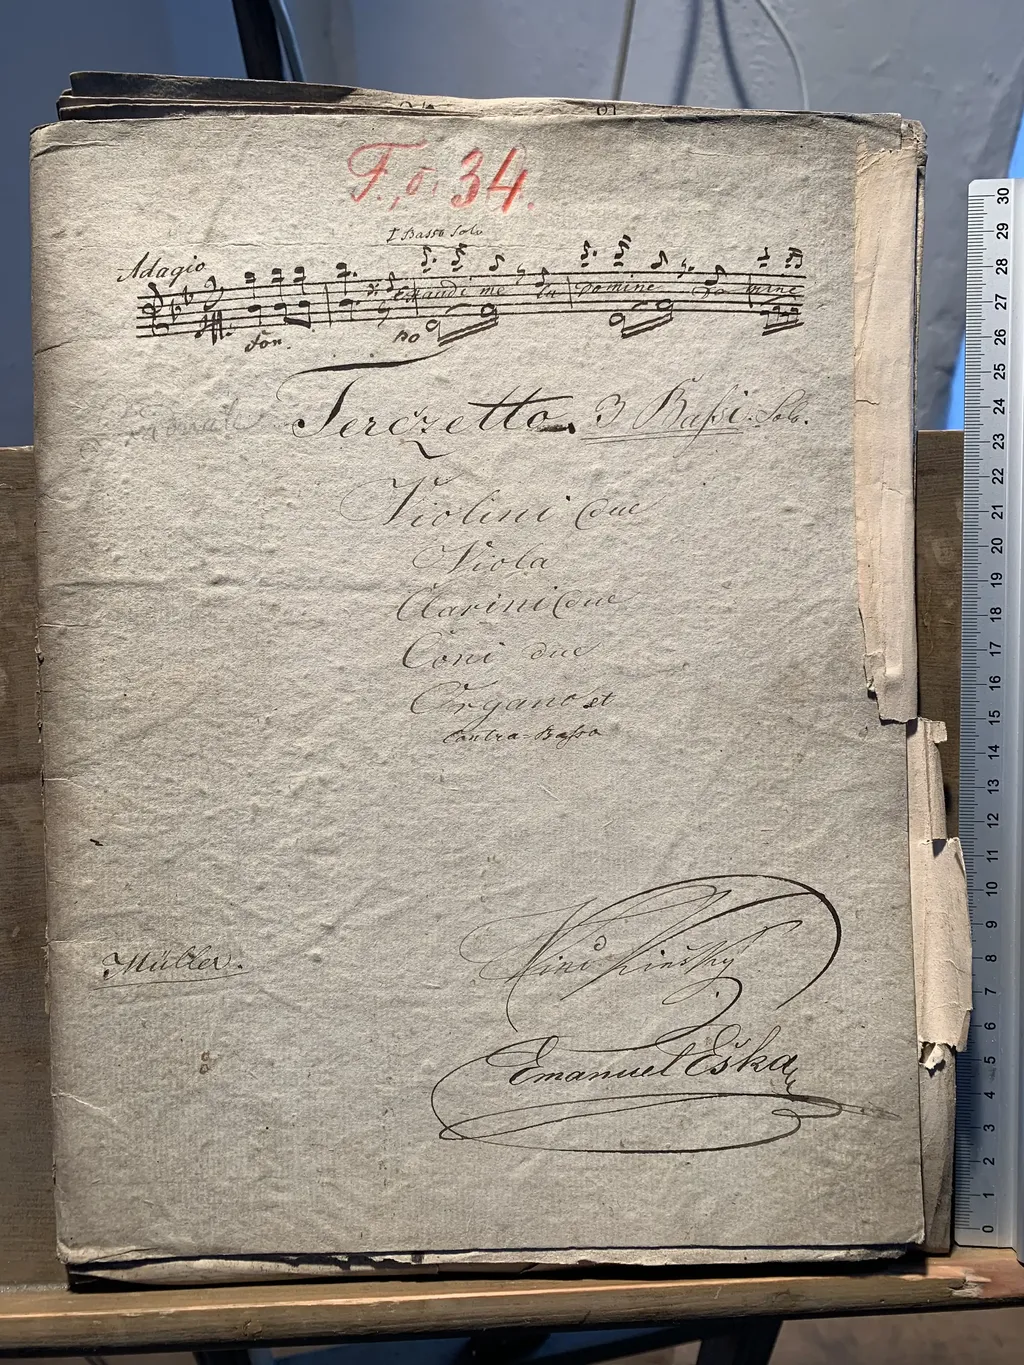 F. č. 34.
I Basso Solo
Adagio
Exaudi me in Domine Do mine
for. po
Terczetto. 3 Bassi. Solo.
Violini due
Viola
Clarini due
Corni due
Organo et
Contra-Basso
Müller.
Emanuel Eška
30
29
28
27
26
25
24
23
22
21
20
19
18
17
16
15
14
13
12
11
10
9
8
7
6
5
4
3
2
1
0